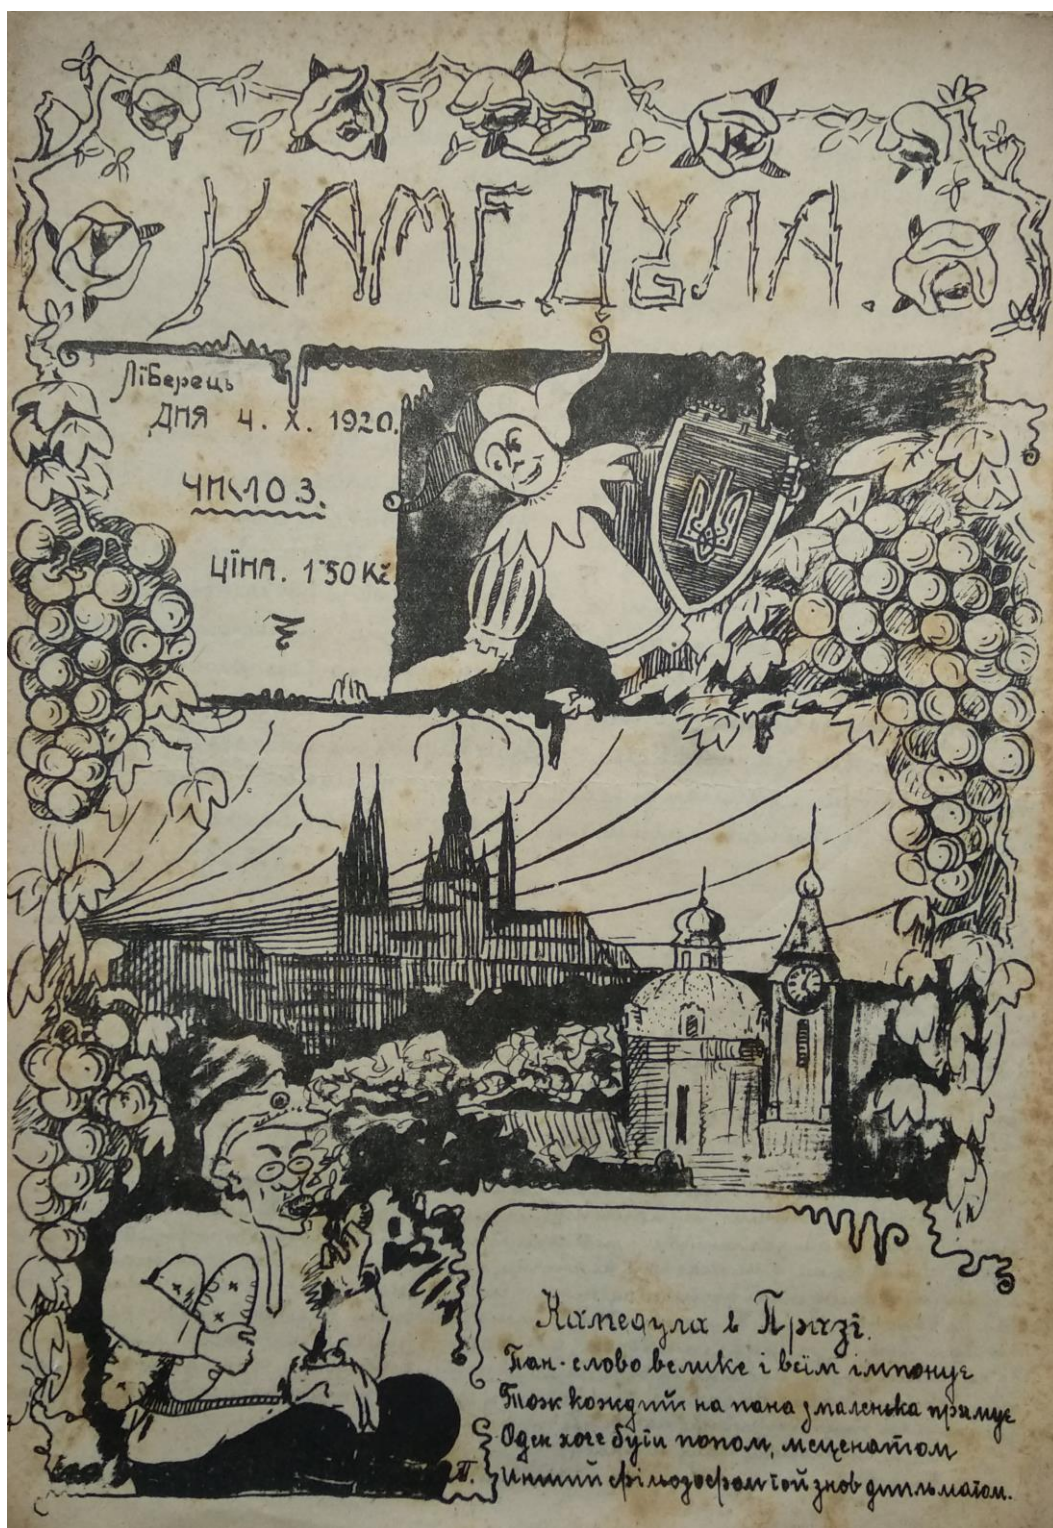 КАМЕДУЛА.
Лїберець
ДНЯ 4. X. 1920.
ЧИСЛО 3.
ЦЇНА. 1˙50 Kč.
Камедула в Празї.
Пан-слово велике і всїм імпонує
Тож кождий на пана змаленька прямує
Оден хоче бути попом, меценатом
Инший фільозофом той знов дипльматом.
П.